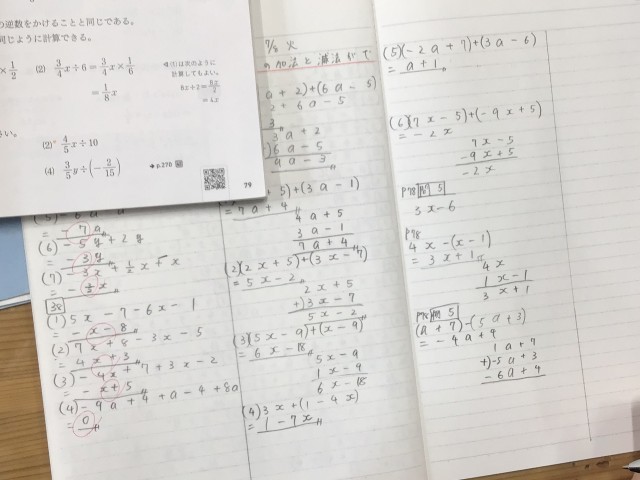 の逆数をかけることと同じである。
同じように計算できる。
×1/2 (2) 3/4 x÷6=3/4 x×1/6
=1/8 x
(1)は次のように
計算してもよい。
8x÷2=8x/2
=4x
さい。
(2) 4/5 x÷10
(4) 3/5 y÷(-2/15)
→p.270
79
7/8 火
の加法と減法
a+2)+(6a-5)
2+6a-5
3a+2
6a-5
9a-3
+5)+(3a-1)
=7a+4
4a+5
3a-1
7a+4
(2)(2x+5)+(3x-7)
=5x-2
2x+5
+)3x-7
5x-2
(3)(5x-9)+(x-9)
=6x-18
5x-9
1x-9
6x-18
(4)3x+(1-4x)
=1-7x
(5)-6a
=-7a
(6)-5y+2y
=-3y
(7)-3x+1/2x+x
=-1/2x
38
(1)5x-7-6x-1
=-x-8
(2)7x+8-3x-5
=4x+3
(3)-4x+7+3x-2
=-x+5
(4)-9a+4+a-4+8a
=0
(5)(-2a+7)+(3a-6)
=a+1
(6)(7x-5)+(-9x+5)
=-2x
7x-5
-9x+5
-2x
P78 問5
3x-6
P78
4x-(x-1)
=3x+1
4x
1x-1
3x+1
問5
(a+7)-(5a+3)
=-4a+9
1a+7
+)-5a+3
-6a+4